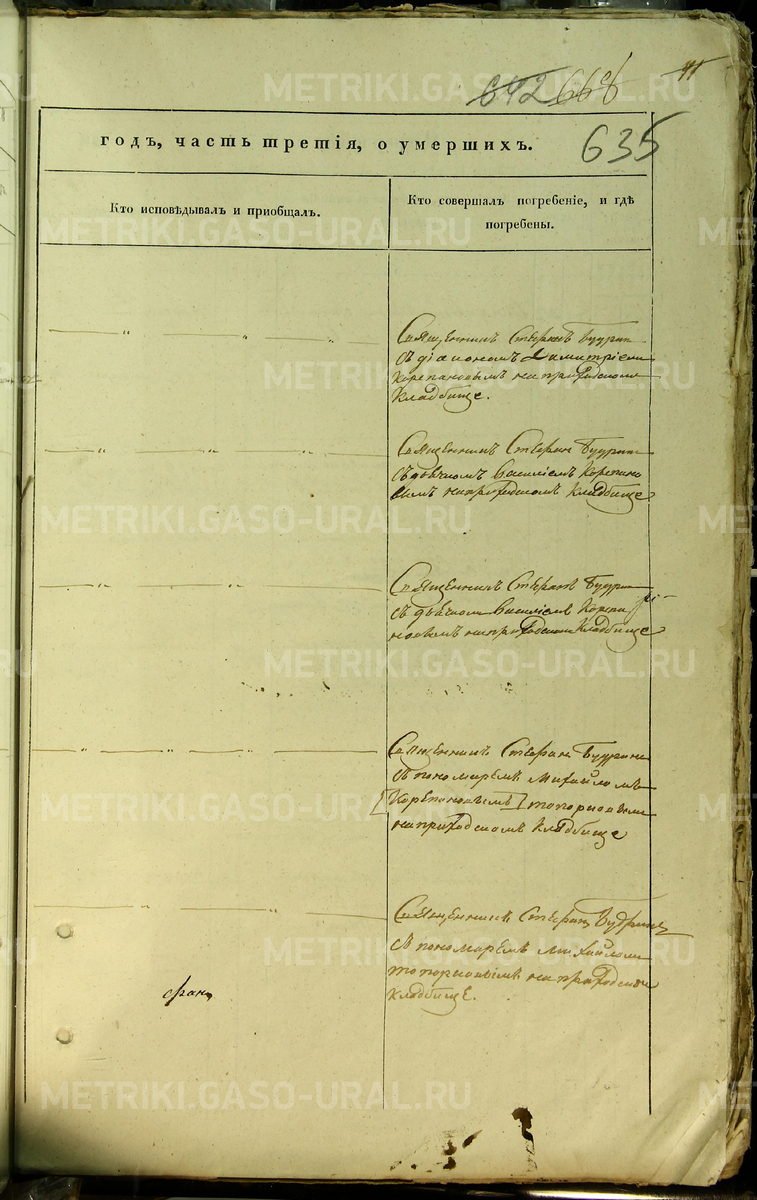 11
642 668
635
годъ, часть третія, о умершихъ.
Кто исповѣдывалъ и приобщалъ.
Кто совершалъ погребеніе, и гдѣ
погребены.
Священникъ Стефанъ Будрин
съ діакономъ Димитріемъ
Корепановымъ на приходском
кладбище.
Священникъ Стефан Будрин
съ дьячкомъ Василіемъ Корепано
вымъ на приходскомъ кладбище
Священникъ Стефанъ Будрин
съ дьячком Василіемъ Корепа
новымъ на приходском кладбище
Священникъ Стефан Будрин
съ пономаремъ Михайломъ
[Корепановымъ] Топорковым
на приходскомъ кладбище
Священникъ Стефан Будрин
съ пономаремъ Михайлом
Топорковымъ на приходском
кладбище.
METRIKI.GASO-URAL.RU